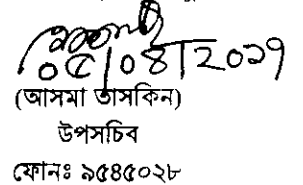 ০৫|০৪|২০২১
(আসমা তাসকিন)
উপসচিব
ফোনঃ ৯৫৪৫০২৮